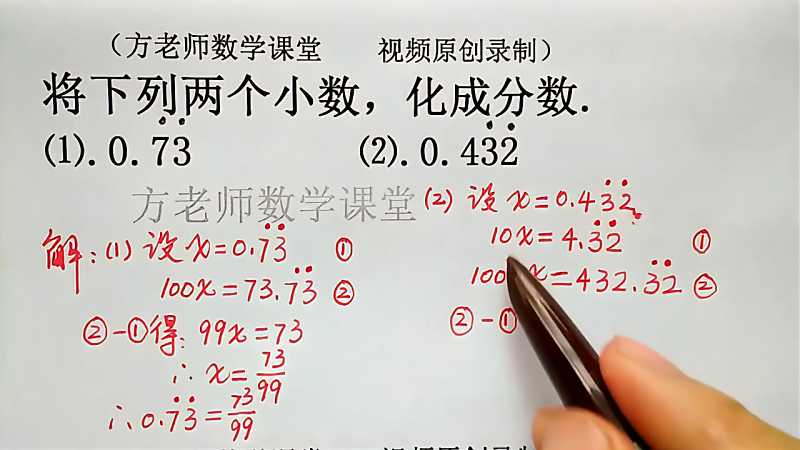 （方老师数学课堂 视频原创录制）
将下列两个小数，化成分数.
(1).0.7̇3̇ (2).0.43̇2̇
方老师数学课堂
解：(1) 设 x=0.7̇3̇ ①
100x=73.7̇3̇ ②
②-①得：99x=73
∴ x=73/99
∴ 0.7̇3̇=73/99
(2) 设 x=0.43̇2̇
10x=4.3̇2̇ ①
x=432.3̇2̇ ②
②-①